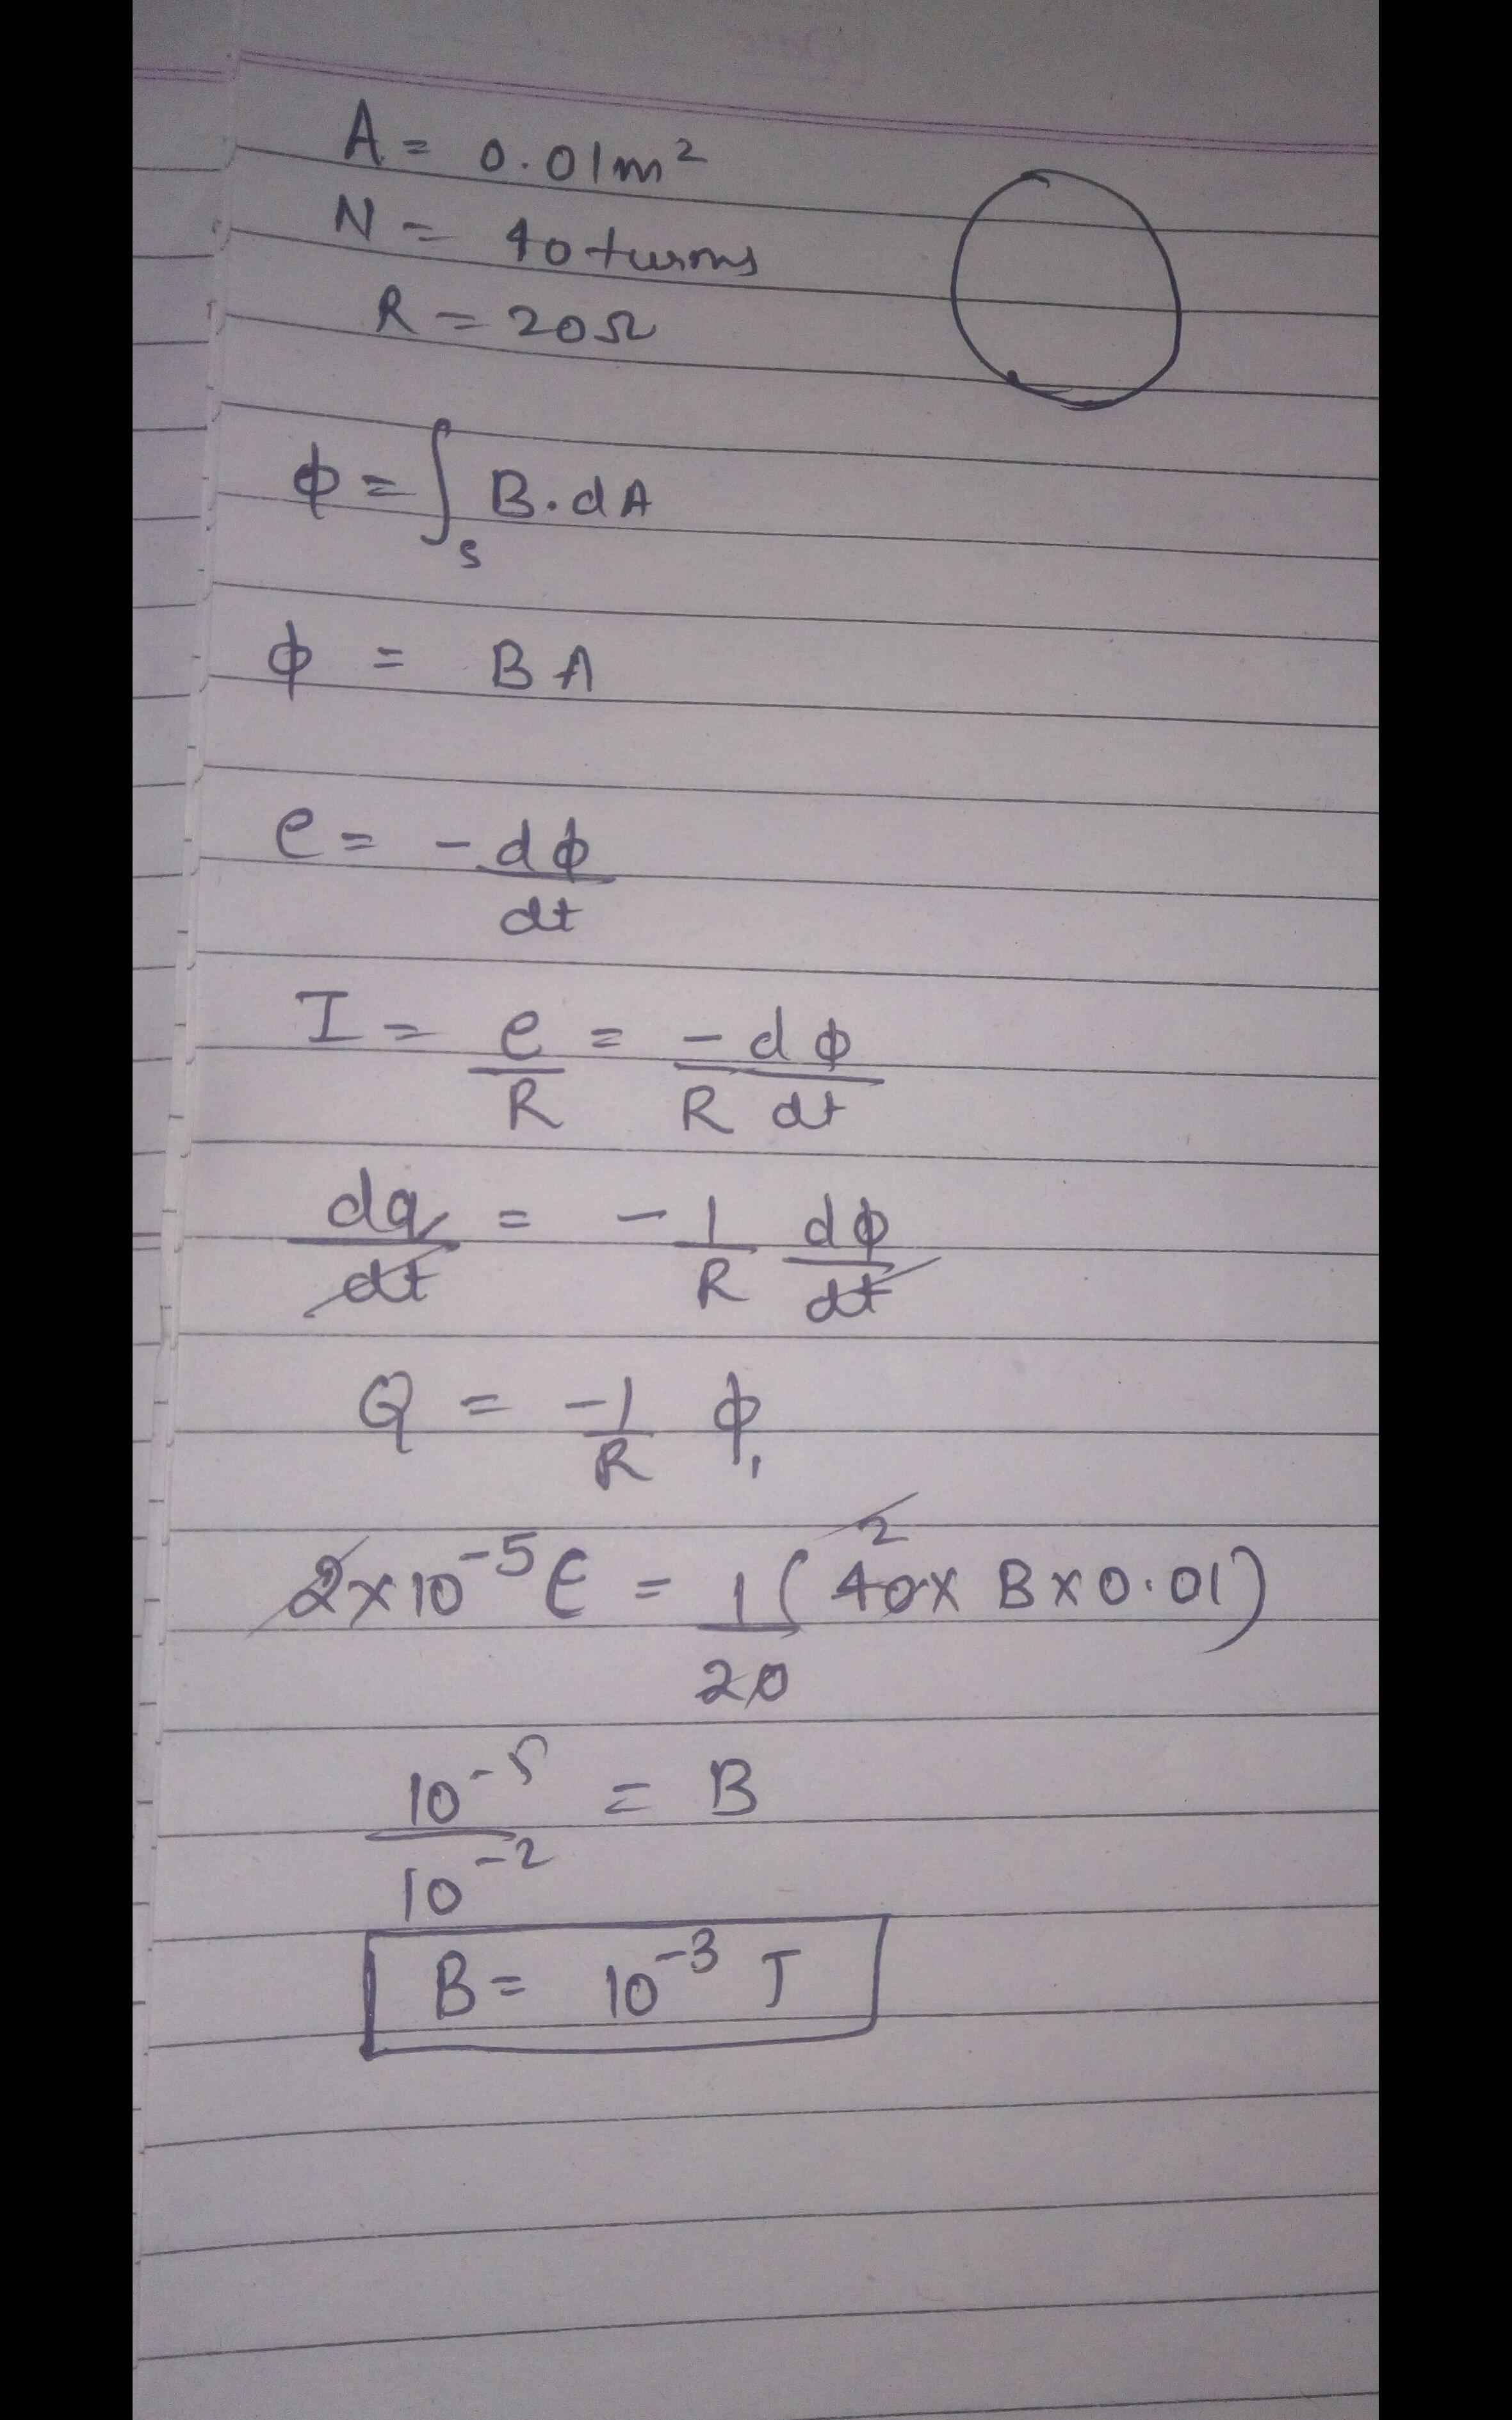 A = 0.01m²
N = 40 turns
R = 20Ω
ϕ = ∫ₛ B.dA
ϕ = BA
e = -dϕ/dt
I = e/R = -dϕ/R dt
dq/dt = -1/R dϕ/dt
Q = -1/R ϕ₁
2×10⁻⁵ C = 1/20 (40× B×0.01)
2
10⁻⁵/10⁻² = B
B = 10⁻³ T